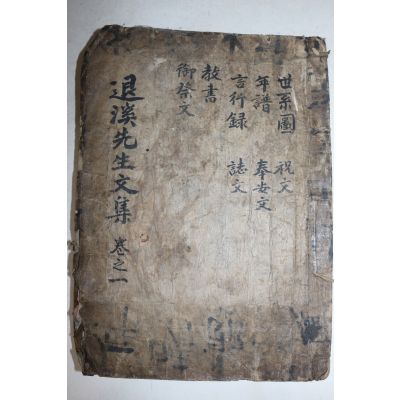 世系圖 祝文
年譜 奉安文
言行録 誌文
教書
御祭文
退溪先生文集 卷之一